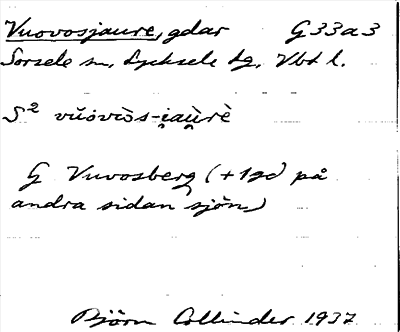 Vuovosjaure, gdar G 33a3
Sorsele sn, Lycksele lg, Vbt l.
S² vŭovòs-i̯au̯rè
G Vuvosberg (+1gd på
andra sidan sjön)
Björn Collinder 1937